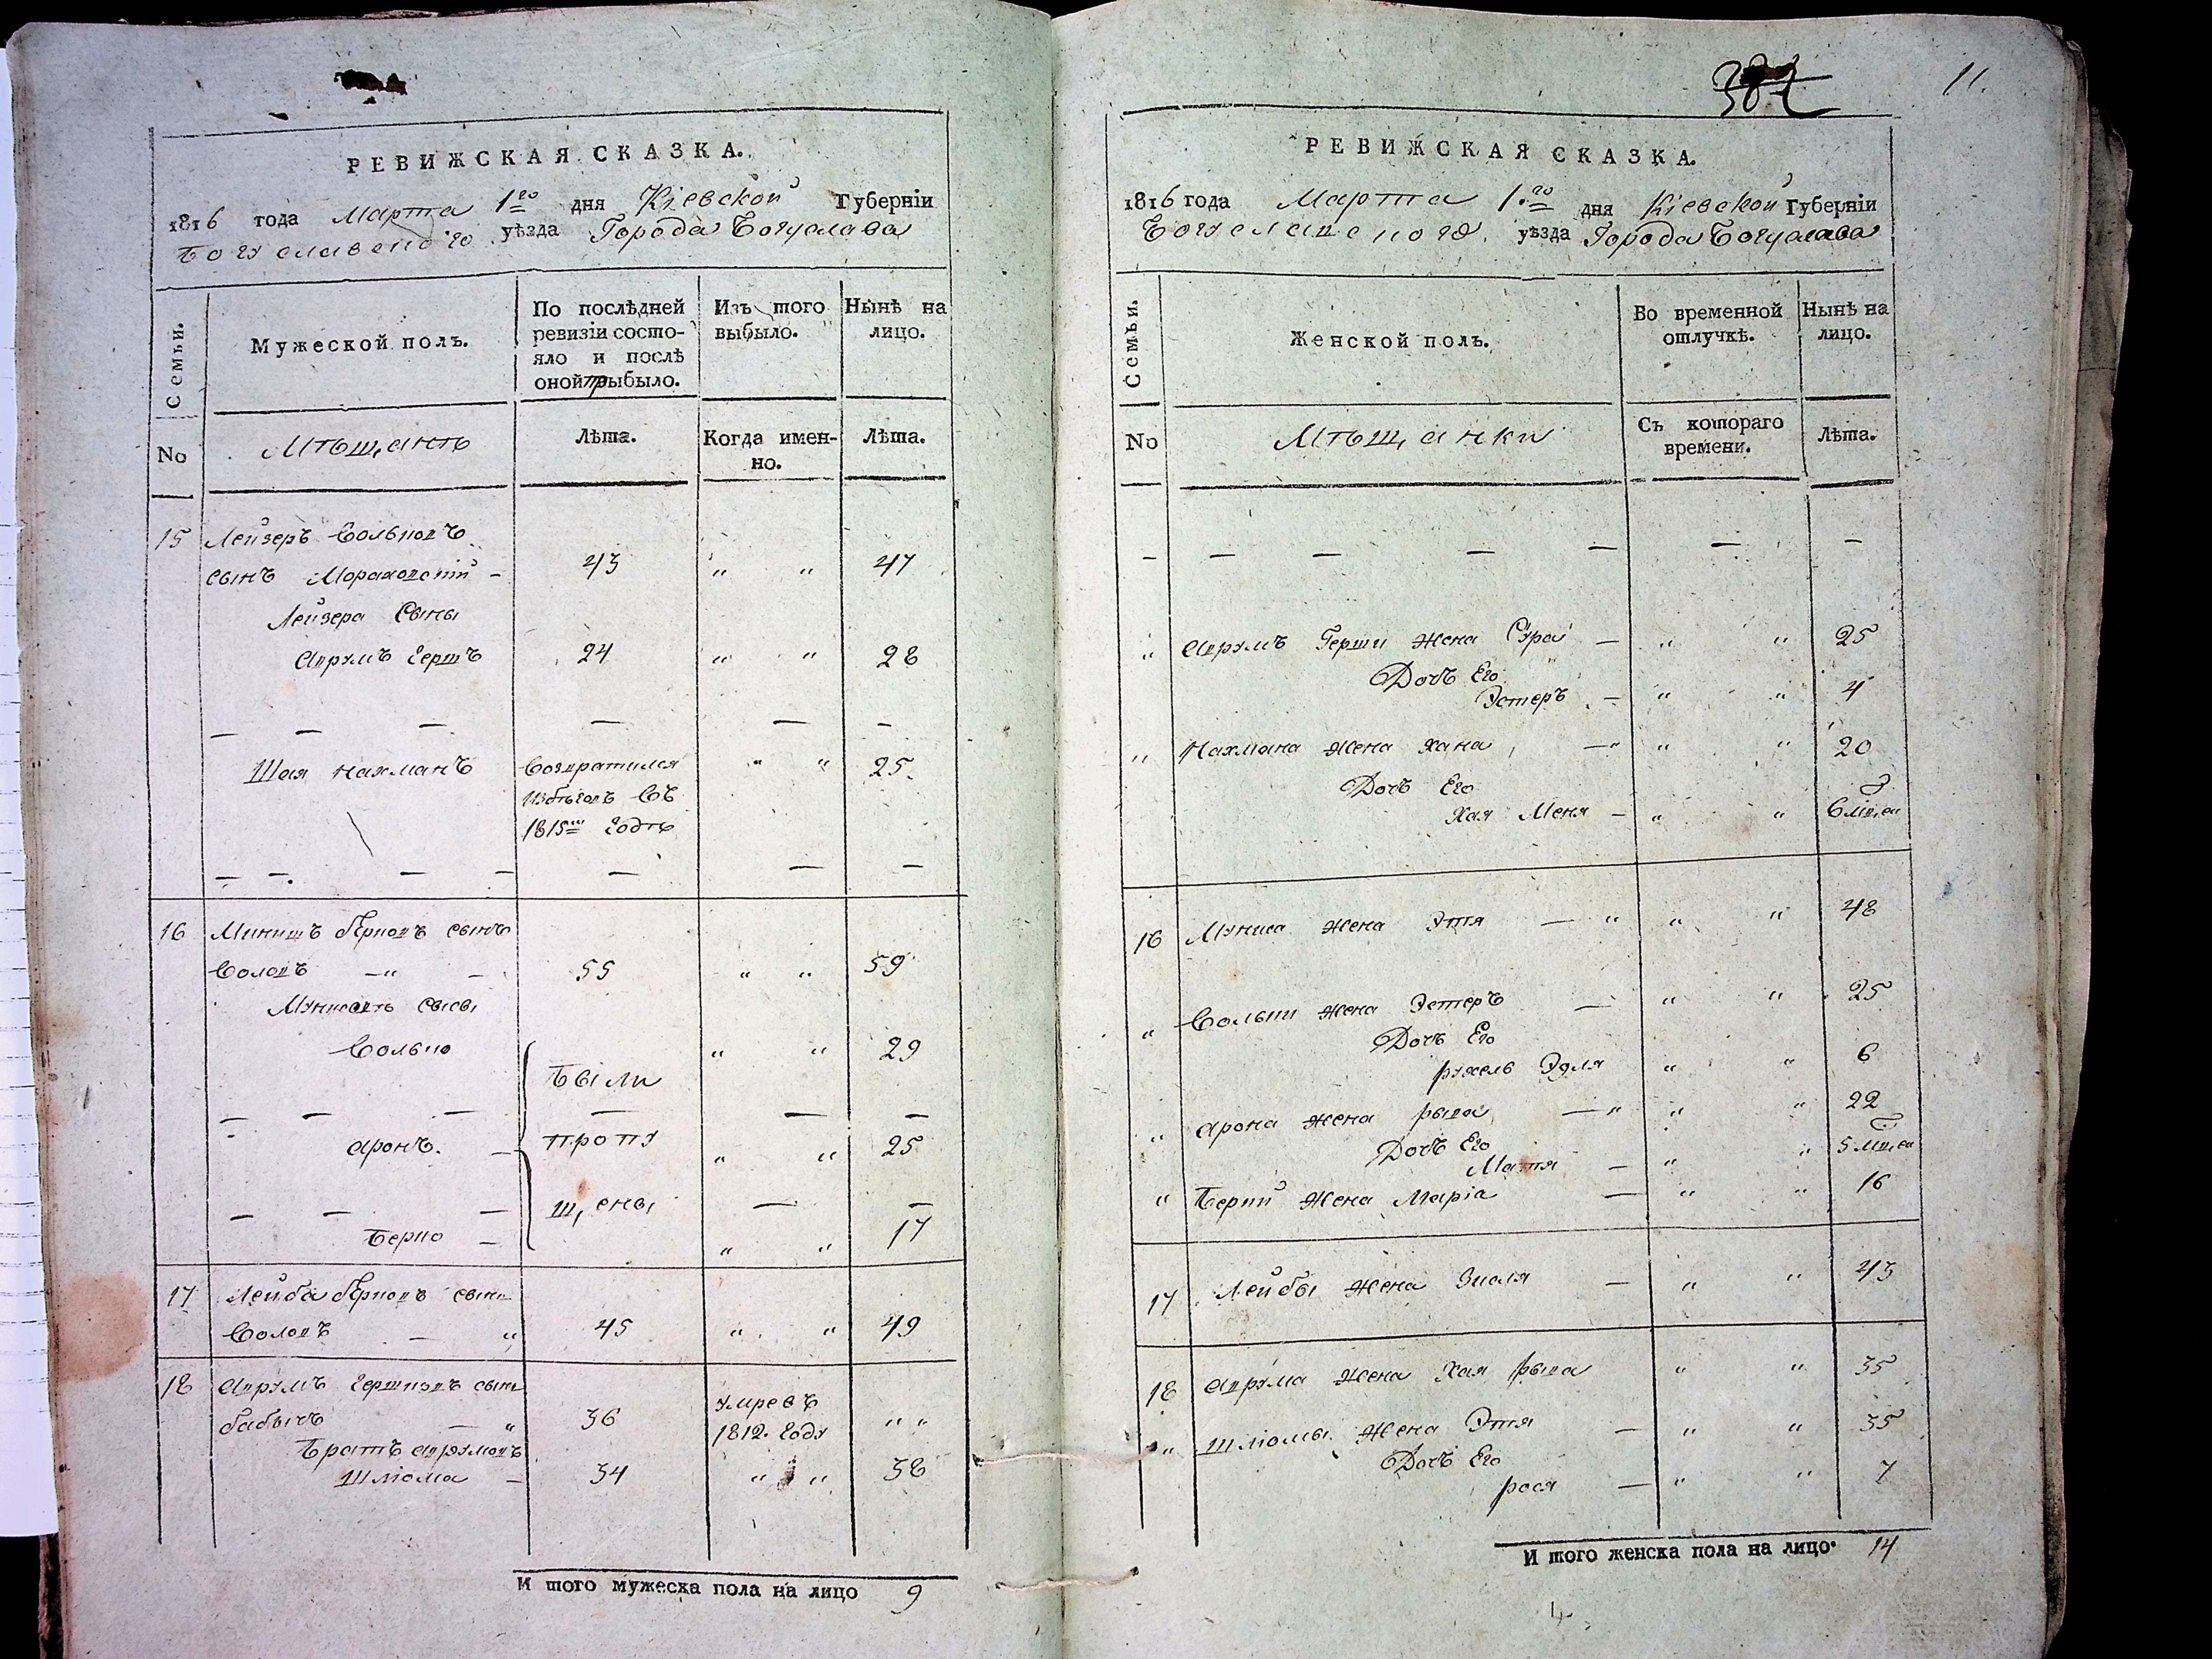 РЕВИЖСКАЯ СКАЗКА.
1816 года Марта 1го дня Кіевской Губерніи
Богуславского уѣзда Города Богуслава
Семьи.
Мужеской полъ.
По послѣдней ревизіи состо-
яло и послѣ
оной прыбыло.
Изъ того
выбыло.
Нынѣ на
лицо.
No
Мѣщанѣ
Лѣта.
Когда имен-
но.
Лѣта.
15 Лейзеръ Волковъ
сынъ Мораховскій — 43 " " 47
Лейзера Сыны
Аврумъ Гершъ 24 " " 28
— — — — —
Шая Нахманъ Возвратился " " 25
избѣговъ Въ
1815м Годѣ
— — — — — — —
16 Минишъ Бѣрковъ сынъ
Воловъ —" — 55 " " 59
Мунисовы сыны
Волько " " 29
Были
— — — — — —
Аронъ. — пропу " " 25
щены
— — — — —
Берко — " " 17
17 Лейба Бѣрковъ сынъ
Воловъ — " 45 " " 49
18 Аврумъ Гершковъ сынъ
бабичъ — " 36 умревъ
1812. Году " "
Братъ Аврумовъ
Шліома — 34 " " 38
И того мужеска пола на лицо 9
382
11.
РЕВИЖСКАЯ СКАЗКА.
1816 года Марта 1.го дня Кіевской Губерніи
Богуславского уѣзда Города Богуслава
Семьи.
Женской полъ.
Во временной
отлучкѣ.
Нынѣ на
лицо.
No
Мѣщанки
Съ котораго
времени.
Лѣта.
— — — — — — —
" Аврумъ Герши жена Сура — " " 25
Дочь Его
Эстеръ — " " 4
" Нахмана жена Хана —" " " 20
Дочь Его
Хая Меня — " " 6 мѣсей
16 Муниса жена Этя —" " " 48
" Вольки жена Эстеръ — " " 25
Дочь Его
рухель Эдля " " 6
" Арона жена рыва —" " " 22
Дочь Его
Матя — " " 5 мѣсей
" Берки жена Маріа — " " 16
17 Лейбы жена Зисля — " " 43
18 Аврума жена Хая рыва " " 35
" Шліомы жена Этя — " " 35
Дочь Его
рося — " " 7
И того женска пола на лицо. 14